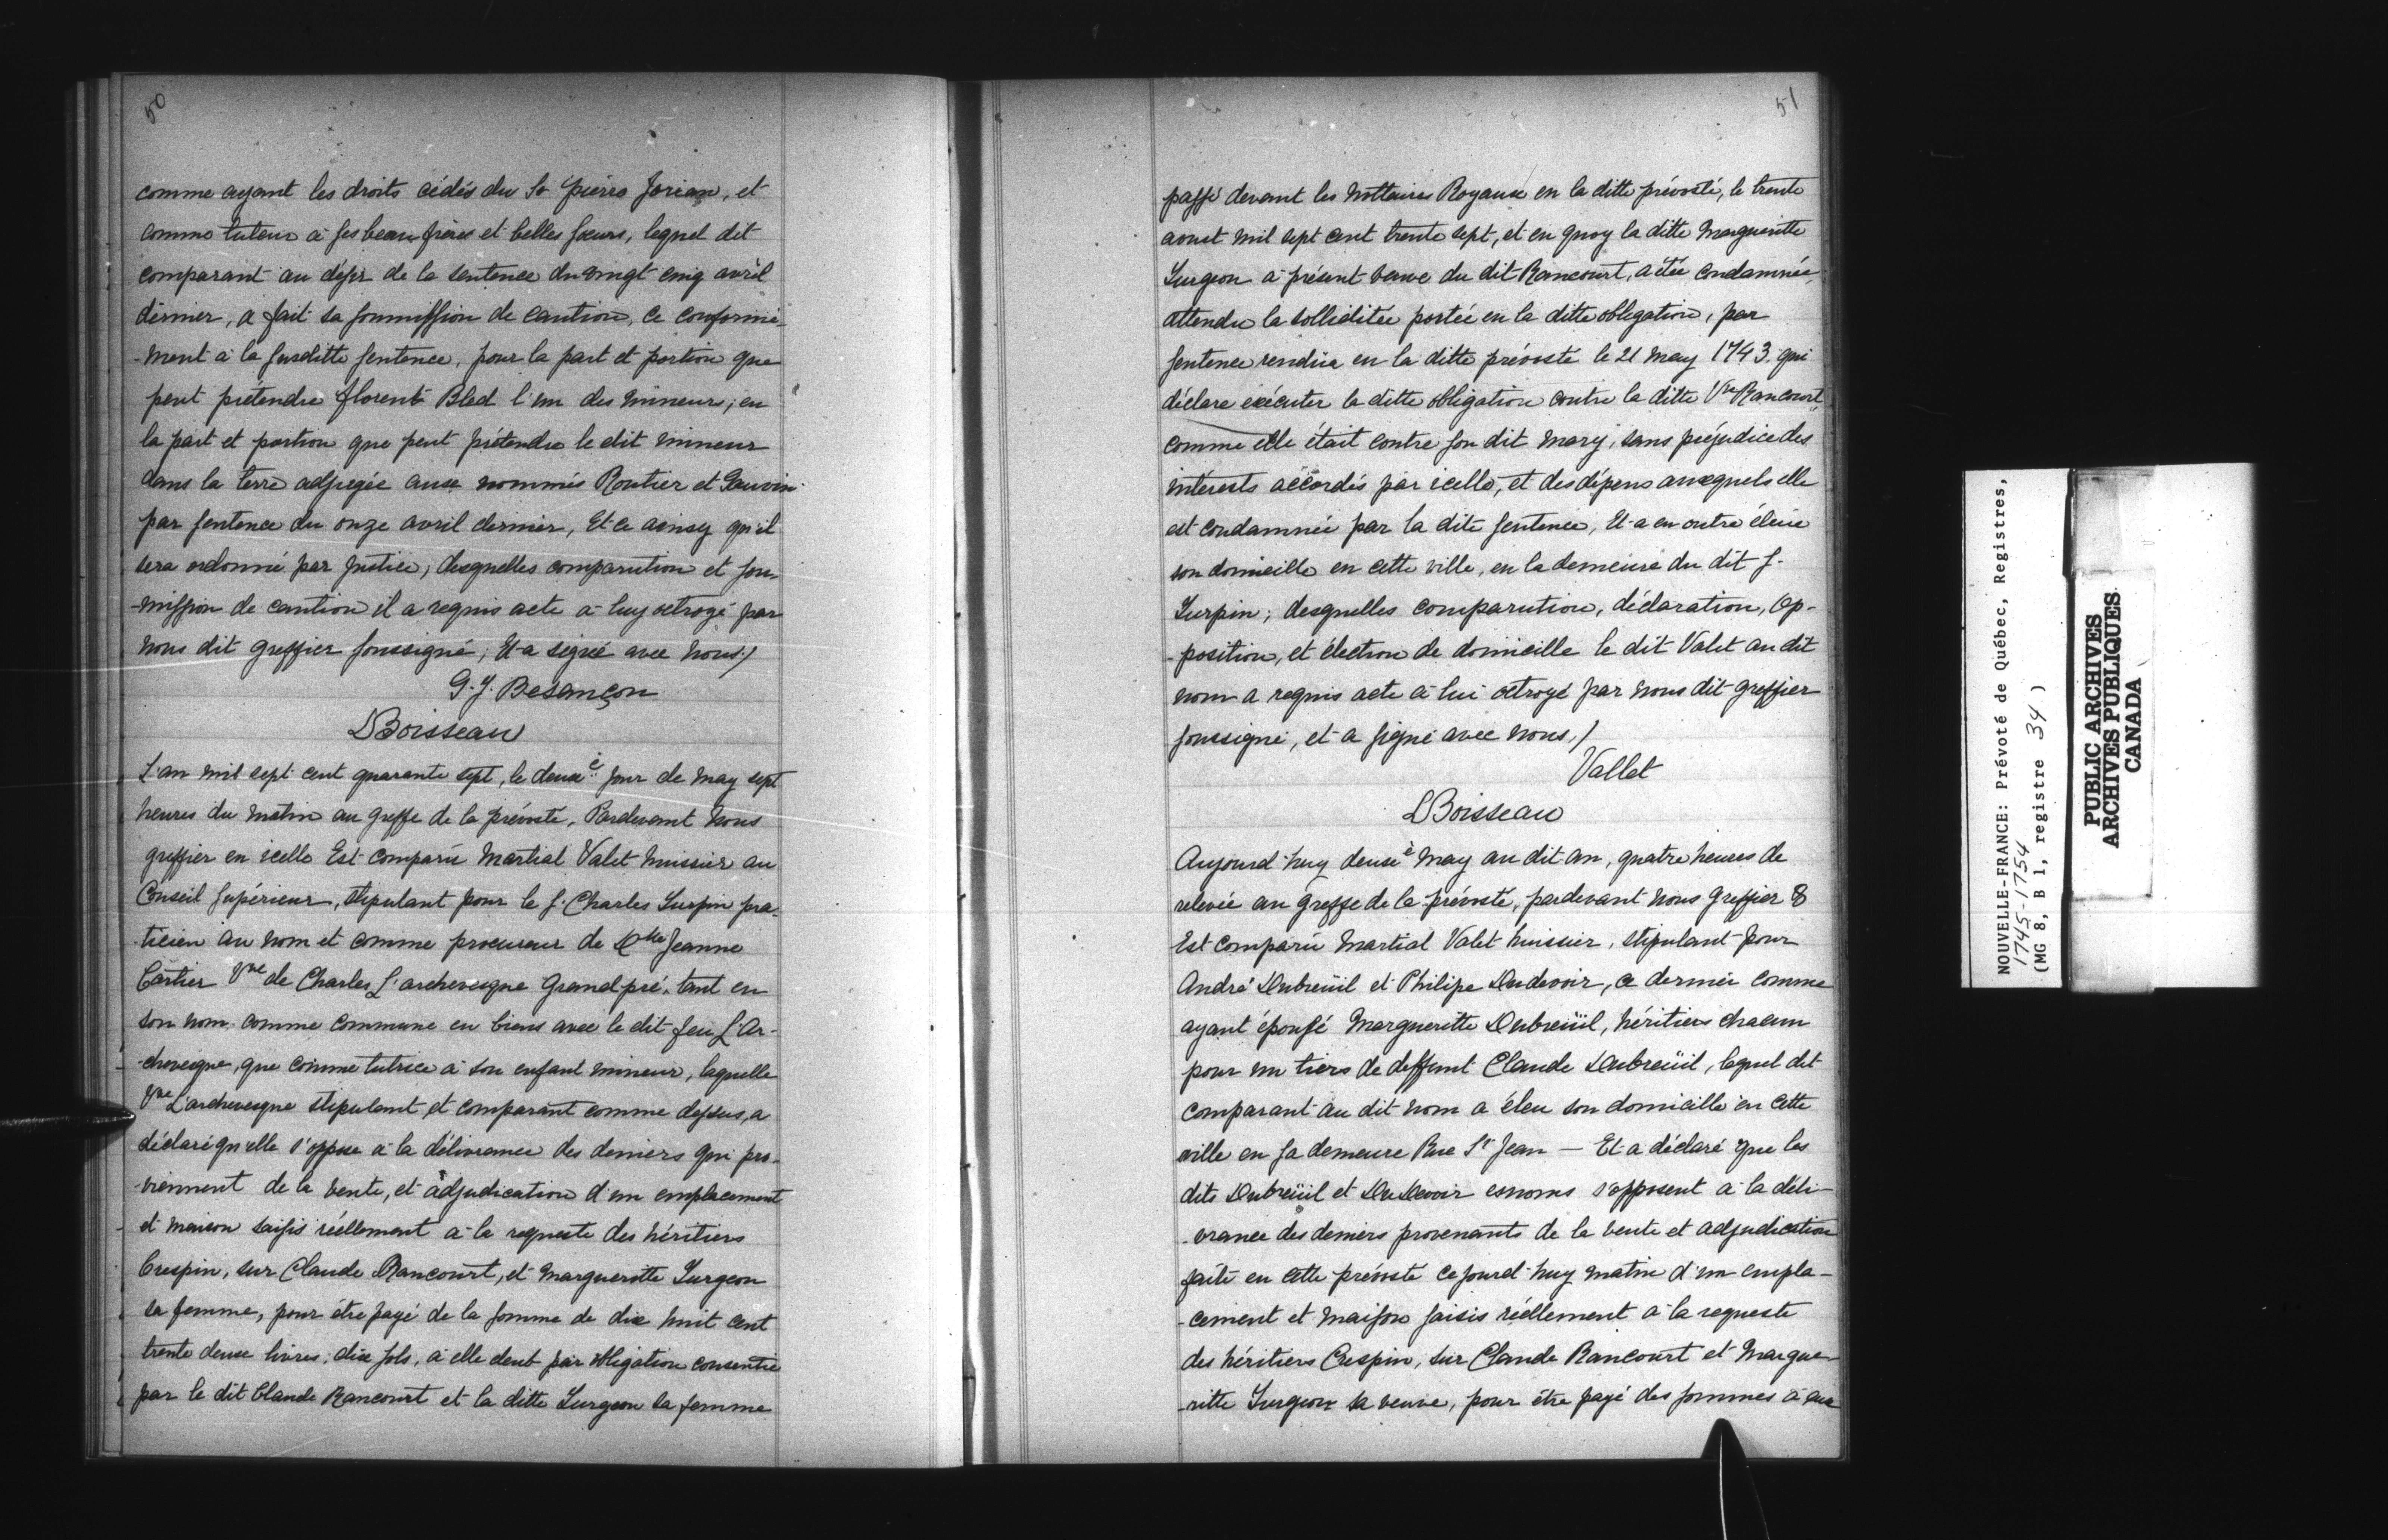 50
comme ayant les droits cédés du Sr pierre Jorian, et
comme tuteur à ses beau frères et belles sœurs, lequel dit
comparant au dèsir de la sentence du vingt cinq avril
dérnier, a fait sa soumission de caution, ce conformé-
-ment à la susditte sentence, pour la part et portion que
peut prétendre florent Bled l'un des mineurs, en
la part et portion que peut prétendre le dit mineur
dans la terre adjugée aux nommés Routier et Gauvin
par sentence du onze avril dernier, Et ce ainsy qu'il
sera ordonné par Justice, desquelles comparution et sou-
-mission de caution il a requis acte à luy octroyé par
nous dit greffier soussigné, Et a signé avec nous./
G. J. Besançon
DBoisseau
L'an mil sept cent quarante sept, le deuxè jour de may sept
heures du matin au greffe de la prévosté, Pardevant nous
greffier en icelle Est comparu Martial Valet huissier au
Conseil supérieur, stipulant pour le s. Charles Turpin pra-
-ticien au nom et comme procureur de Dlle Jeanne
Cartier Vve de Charles L'archevesque Grandpré, tant en
son nom comme commune en biens avec le dit feu L'Ar-
-chevesque, que comme tutrice à son enfant mineur, laquelle
Vve L'archevesque stipulant et comparant comme dessus, a
déclaré qu'elle s'oppose à la délivrance des deniers qui pro-
-viennent de la vente, et adjudication d'un emplacement
et maison saisis réellement à la requeste des héritiers
Crespin, sur Claude Rancourt, et Marguerotte Turgeon
sa femme, pour être payé de la somme de dix huit cent
trente deux livres, dix sols, à elle deub par obligation consentie
par le dit Claude Rancourt et la ditte Turgeon sa femme
51
passé devant les Nottaires Royaux en la ditte prévosté, le trente
aoust mil sept cent trente sept, et en quoy la ditte Margueritte
Turgeon à présent veuve du dit Rancourt, a étée condamnée,
attendu la sollidité portée en la ditte obligation, par
sentence rendüe en la ditte prévosté le 21 May 1743 qui
déclare exécuter la ditte obligation contre la ditte Vve Rancourt
comme elle était contre son dit mary, sans préjudice des
intérests accordés par icelle, et des dépens auxquels elle
est condamnée par la dite sentence, Et a en outre éleue
son domicille en cette ville, en la demeure du dit s.
Turpin; desquelles comparution, déclaration, op-
-position, et élection de domicille le dit Valet au dit
nom a requis acte à lui octroyé par nous dit greffier
soussigné, et a signé avec nous./
Vallet
DBoisseau
Aujourd'huy deuxè May au dit an, quatre heures de
relevée au greffe de la prévosté, pardevant nous Greffier &
Est comparu Martial Valet huissier, stipulant pour
André Dubreüil et Philipe Dudevoir, ce dernier comme
ayant épousé Margueritte Dubreüil, héritiers chacun
pour un tiers de deffunt Claude Dubreüil, lequel dit
comparant au dit nom a éleu son domicille en cette
ville en sa demeure Rue St Jean — Et a déclaré que les
dits Dubreüil et DuDevoir esnoms s'opposent à la déli-
-vrance des deniers provenants de la vente et adjudication
faite en cette prévosté cejourd'huy matin d'un empla-
-cement et maison saisis réellement à la requeste
des héritiers Crespin, sur Claude Rancourt et Margue-
-ritte Turgeon sa veuve, pour être payé des sommes à eux
NOUVELLE-FRANCE: Prévoté de Québec, Registres,
1745-1754
(MG 8, B 1, registre 34 )
PUBLIC ARCHIVES
ARCHIVES PUBLIQUES
CANADA